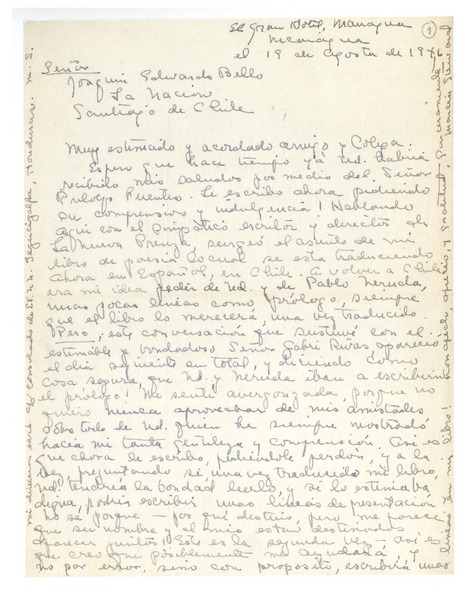 El Gran Hotel, Managua
1
Nicaragua
el 19 de Agosto de 1946
Señor
Joaquin Edwards Bello
La Nacion
Santiago de Chile
Muy estimado y acordado amigo y Colega:
Espero que hace tiempo ya Ud. habia
recibido mis saludos por medio del Señor
Rodolfo Fuentes. Le escribo ahora pidiendo
su comprensivo y indulgencia! Hablando
aqui con el simpatico escritor y director de
La Nueva Prensa, surgió el asunto de mi
libro de poesia lo cual se esta traduciendo
ahora en Español, en Chile. A volver a Chile
era mi idea pedir de Ud. y de Pablo Neruda,
unas pocas lineas como prólogo, siempre
que el libro lo merecerá una vez traducido.
Pero, este conversación que sustuve con el
estimable y bondadoso Señor Gabri Rivas aparecio
el dia siguiente en total, y diciendo como
cosa segura, que Ud. y Neruda iban a escribir
el prólogo! Me sentí avergonzada, porque no
quiero nunca aprovechar de mis amistades
sobre todo de Ud. quien ha siempre mostrado
hacia mi tanta gentileza y comprensión. Asi es
que ahora le escribo, pidiendole perdón, y a la
vez, preguntando si, una vez traducido mi libro,
Ud. tendria la bondad leerlo, y si lo estimava
digna, podria escribir unas lineas de presentación
no se porque — por qué destino, pero me parece
que su nombre y el mio estan destinados
aparecer juntos! Este es la segunda vez — asi es
que creo que posiblemente me ayudará, y
no por error, sino con proposito, escribirá unas
mi direccion será c/o Consulado de EE.UU. Tegucigalpa, Honduras. M. S.
lineas en mi libro!
aprecio, y gratitud, Sinceramente